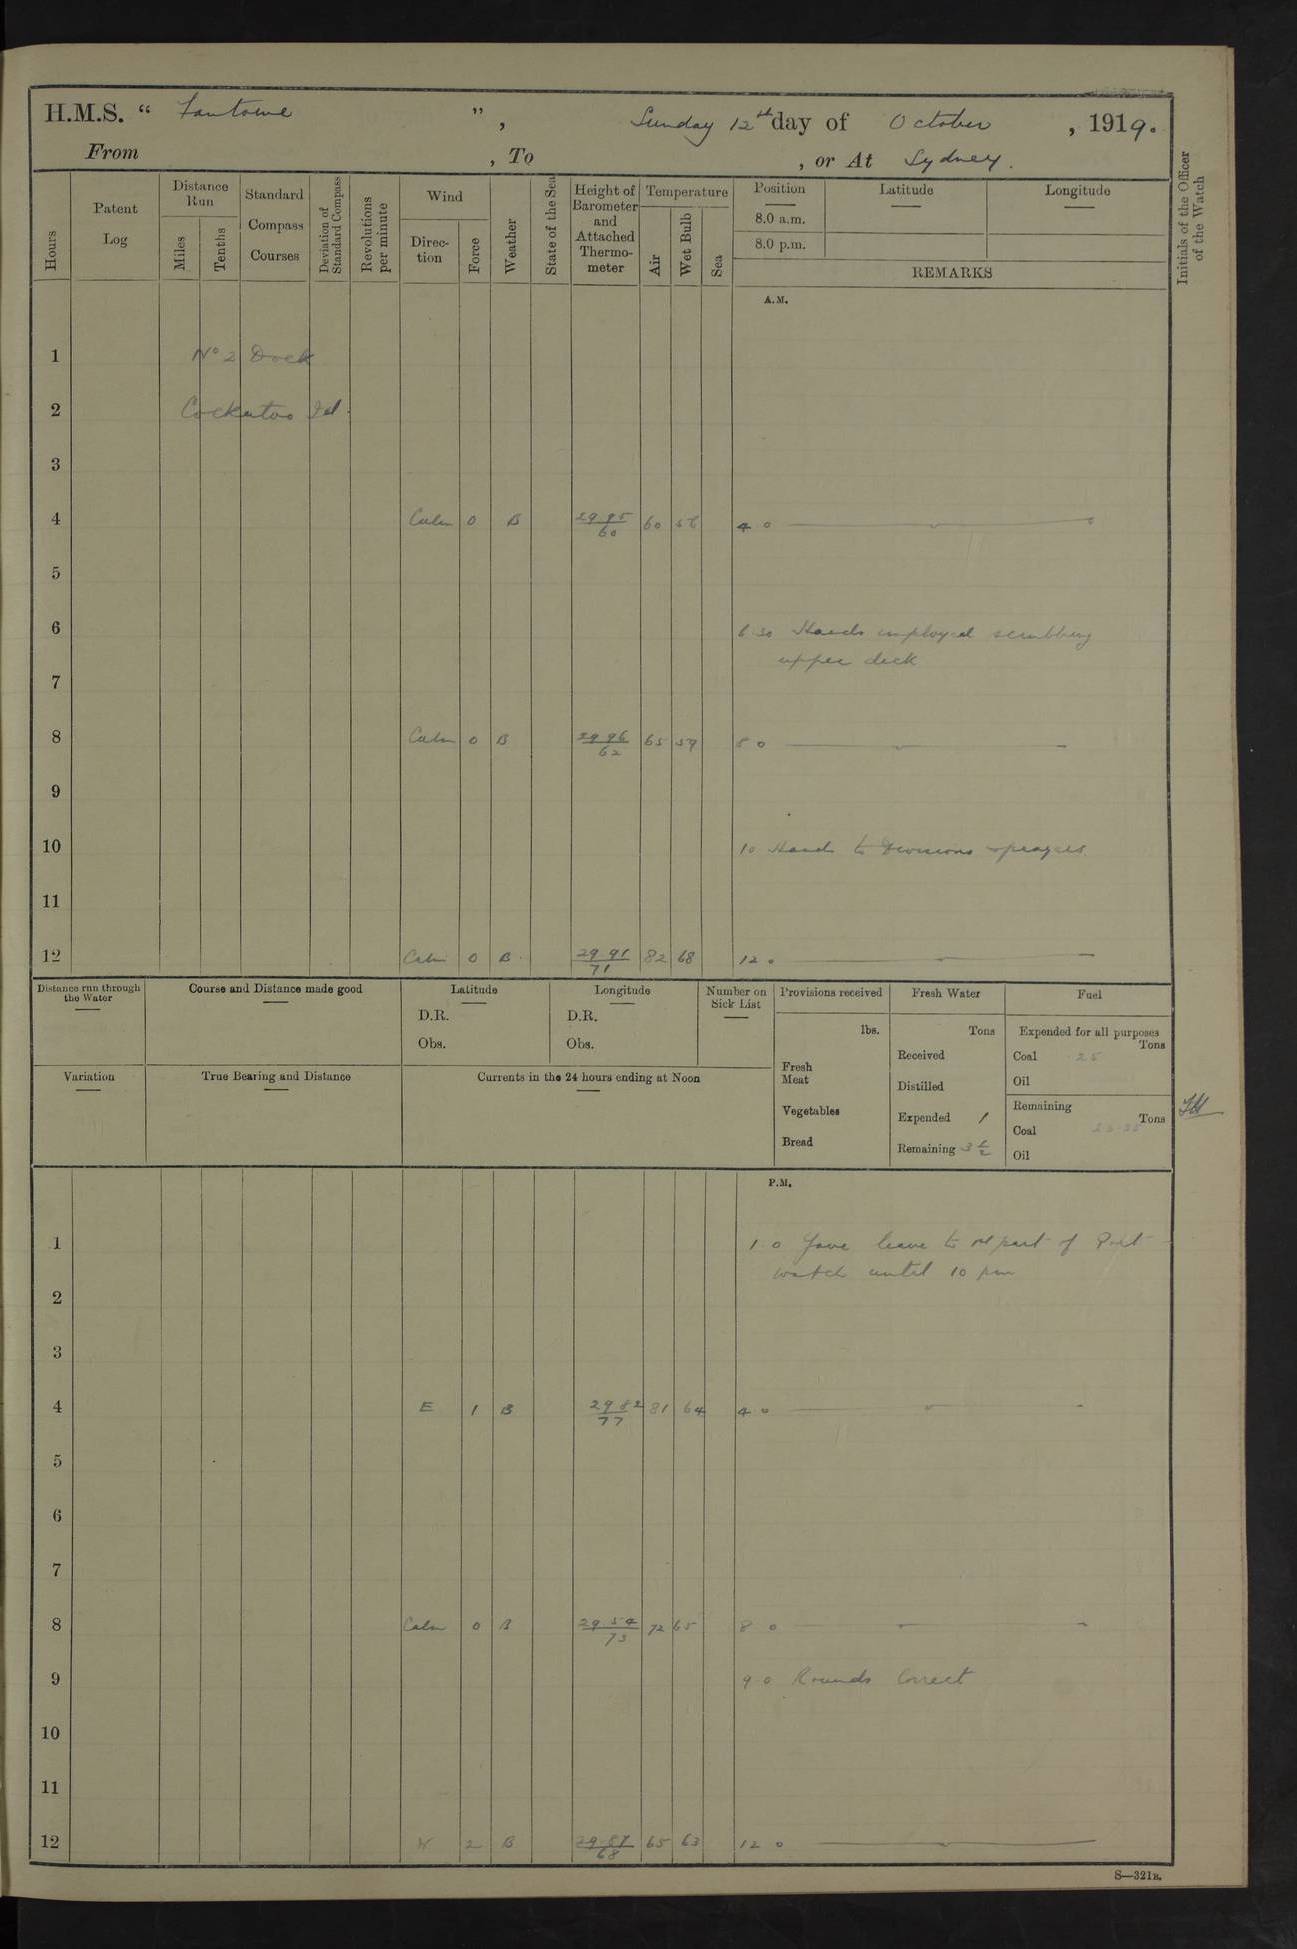 H.M.S. “ Fantome ” , Sunday 12th day of October , 1919.
From , To , or At Sydney.
Hours
Patent Log
Distance Run
Miles
Tenths
Standard Compass Courses
Deviation of Standard Compass
Revolutions per minute
Wind
Direc-tion
Force
Weather
State of the Sea
Height of Barometer and Attached Thermo-meter
Temperature
Air
Wet Bulb
Sea
Position
8.0 a.m.
8.0 p.m.
Latitude
Longitude
REMARKS
Initials of the Officer of the Watch
A.M.
1 No 2 Dock
2 Cockatoo Isd.
3
4 Calm 0 B 29 95/60 60 56 4 0
5
6 6.30 Hands employed scrubbing
upper deck
7
8 Calm 0 B 29 96/62 65 59 8 0
9
10 10 Hands to Divisions & prayers
11
12 Calm 0 B 29 91/71 82 68 12 0
Distance run through the Water
Course and Distance made good
Latitude
D.R.
Obs.
Longitude
D.R.
Obs.
Number on Sick List
Provisions received
lbs.
Fresh Meat
Vegetables
Bread
Fresh Water
Tons
Received
Distilled
Expended 1
Remaining 3
Fuel
Expended for all purposes
Tons
Coal 25
Oil
Remaining
Tons
Coal
Oil
Variation
True Bearing and Distance
Currents in the 24 hours ending at Noon
P.M.
1 1 0 Gave leave to 1st part of Port
watch until 10 pm
2
3
4 E 1 B 29 82/77 81 64 4 0
5
6
7
8 Calm 0 B 29 54/73 72 65 8 0
9 9 0 Rounds Correct
10
11
12 2 B 29 87/68 65 63 12 0
S—321B.